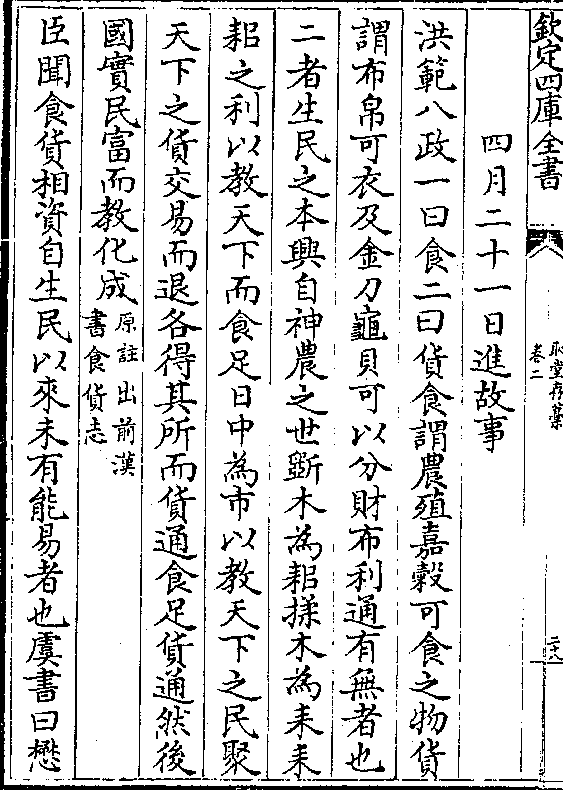 欽定四庫全書
恥堂存藁
卷二
二十八
四月二十一日進故事
洪範八政一曰食二曰貨食謂農殖嘉穀可食之物貨
謂布帛可衣及金刀龜貝可以分財布利通有無者也
二者生民之本興自神農之世斵木為耜揉木為耒耒
耜之利以教天下而食足日中為市以教天下之民聚
天下之貨交易而退各得其所而貨通食足貨通然後
國實民富而教化成原註出前漢
書食貨志
臣聞食貨相資自生民以來未有能易者也虞書曰懋